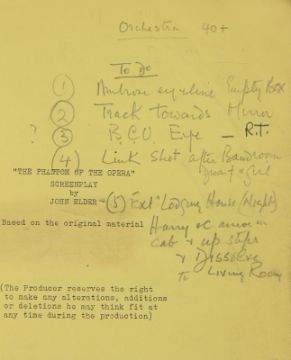 Orchestra 40+
To Do
(1) Ambrose eyeline Empty Box
(2) Track towards Mirror
? (3) B.C.U. Eye — R.T.
(4) Link Shot after Bandroom
Dwarf & Girl
"THE PHANTOM OF THE OPERA"
SCREENPLAY
by
JOHN ELDER
(5) Ext Lodging House (Night)
Based on the original material
Harry & C arrive in
cab & up steps
& Dissolve
to Living Room
(The Producer reserves the right
to make any alterations, additions
or deletions he may think fit at
any time during the production)